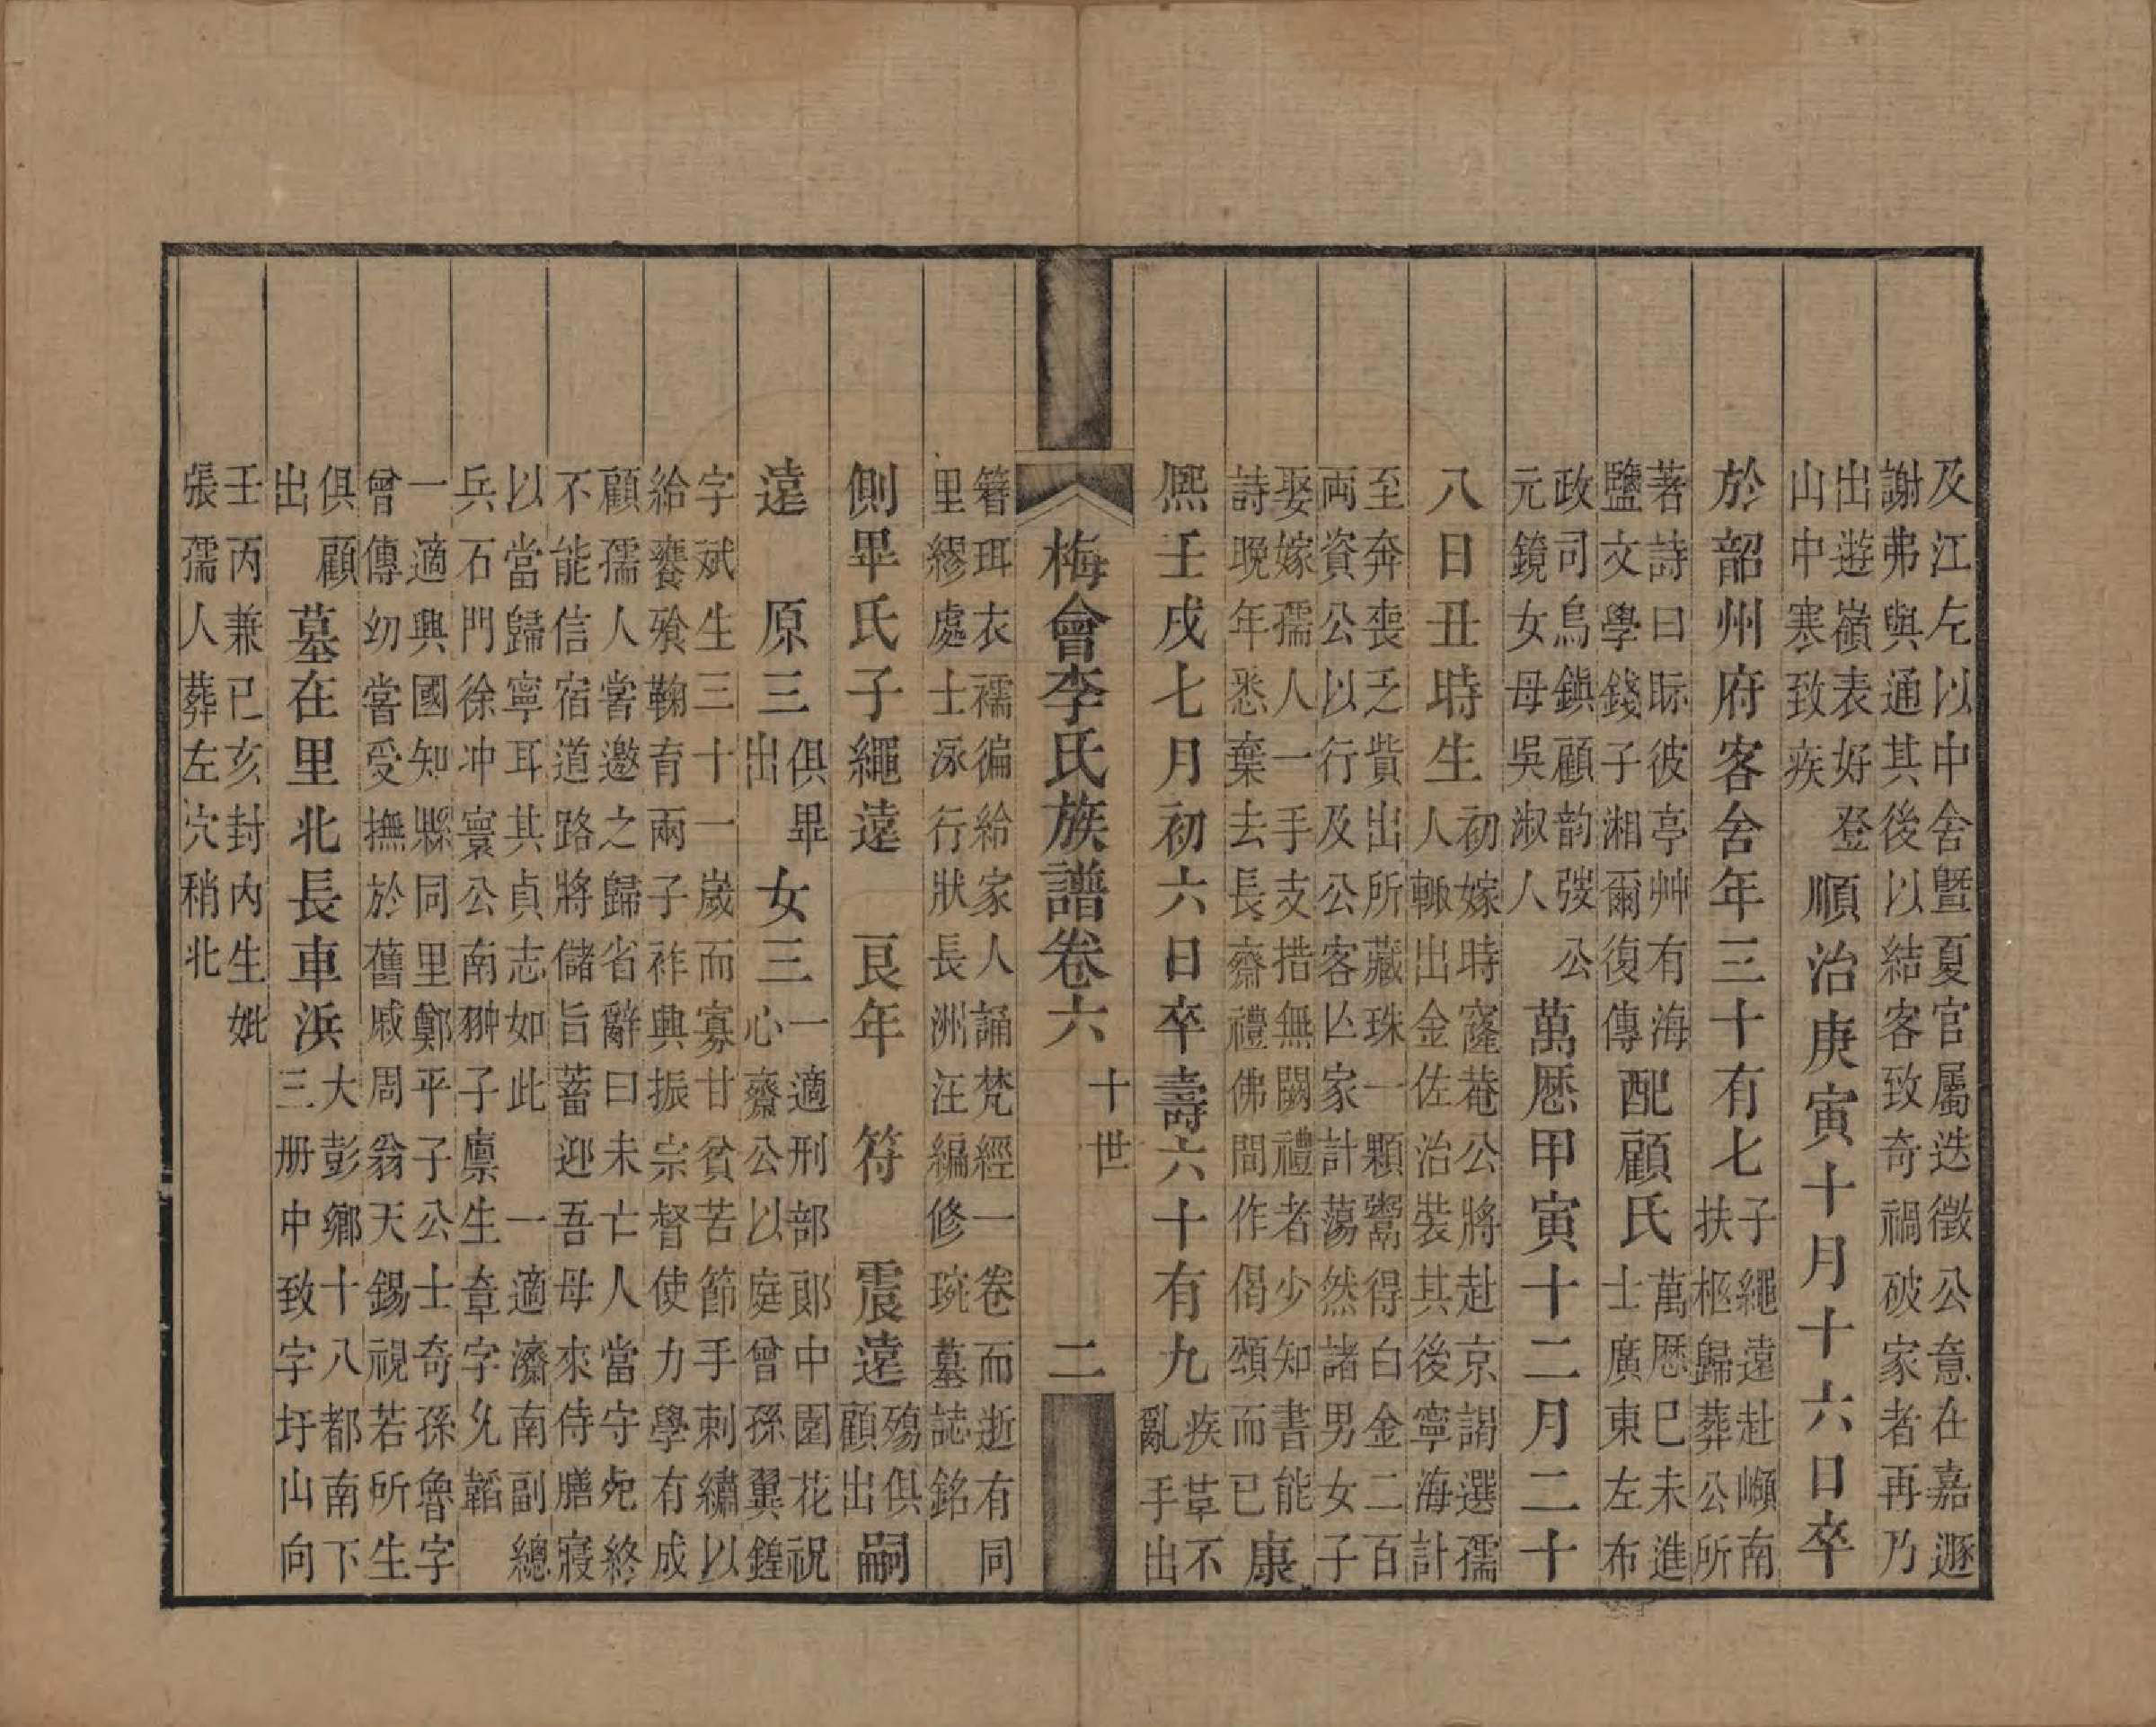 及江左以中舍暨夏官屬迭徵公意在嘉遯
謝弗與通其後以結客致奇禍破家者再乃
出遊嶺表好登
山中寒致疾
順治庚寅十月十六日卒
於韶州府客舍年三十有七
子繩遠赴嶺南
扶柩歸葬公所
著詩曰眎彼亭艸有海
鹽文學錢子湘爾復傳
配顧氏
萬厯巳未進
士廣東左布
政司烏鎭顧韵弢公
元鏡女母吳淑人
萬厯甲寅十二月二十
八日丑時生
初嫁時窿菴公將赴京謁選孺
人輒出金佐治裝其後寧海計
至奔喪乏貲出所藏珠一顆鬻得白金二百
両資公以行及公客亾家計蕩然諸男女子
娶嫁孺人一手支措無闕禮者少知書能
詩晚年悉棄去長齋禮佛間作偈頌而已
康
熙壬戌七月初六日卒壽六十有九
疾草不
亂手出
梅會李氏族譜卷六
十世
二
簪珥衣襦徧給家人誦梵經一卷而逝有同
里繆處士泳行狀長洲汪編修琬墓誌銘
側畢氏子繩遠
艮年
符
震遠
殤俱
顧出
嗣
遠
原三
俱畢
出
女三
一適刑部郎中園花祝
心齋公以庭曾孫翼鍠
字斌生三十一歲而寡甘貧苦節手刺繡以
給饔飱鞠育兩子祚興振宗督使力學有成
顧孺人嘗邀之歸省辭曰未亡人當守兂終
不能信宿道路將儲旨蓄迎吾母來侍膳寢
以當歸寧耳其貞志如此
一適濟南副總
兵石門徐冲寰公南翀子廪生章字允韜
一適興國知縣同里鄭平子公士奇孫魯字
曾傳㓜嘗受撫於舊戚周翁天錫視若所生
俱顧
出
墓在里北長車浜
大彭鄉十八都南下
三册中致字圩山向
壬丙兼已亥封内生妣
張孺人葬左穴稍北